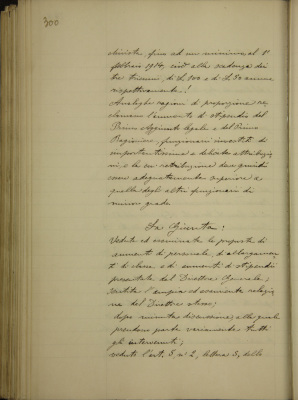 300
ministri, fino ad un minimo, al 1°
febbraio 1914, cioè alla scadenza dei
tre trienni, di L. 800 e di L. 30 annue
rispettivamente!
Analoghe ragioni di proporzione re-
clamano l'aumento di stipendio del
Primo Segretario legale e del Primo
Ragioniere, funzionari investiti di
importantissime e delicate attribuzio-
ni, e la cui retribuzione deve quindi
essere adeguatamente superiore a
quella degli altri funzionari di
minor grado.
La Giunta:
Vedute ed esaminate le proposte di
aumenti di personale, d'allargamen-
ti di classe, e di aumenti di stipendi
presentate dal Direttore Generale;
sentita l'ampia ed esauriente relazio-
ne del Direttore stesso;
dopo minuta discussione, alla quale
prendono parte variamente tutti
gli intervenuti;
veduto l'art. 5, n.° 2, lettera 3, della